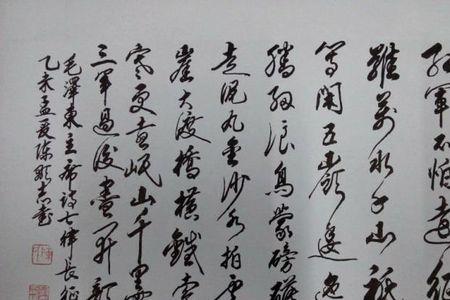 紅軍不怕遠征
難萬水千山祇
等閑五嶺逶迤
騰細浪烏蒙磅礴
走泥丸金沙水拍雲
崖大渡橋橫鐵索
寒更喜岷山千里雪
三軍過後盡開顏
毛澤東主席詩七律長征
乙未孟夏陳志書